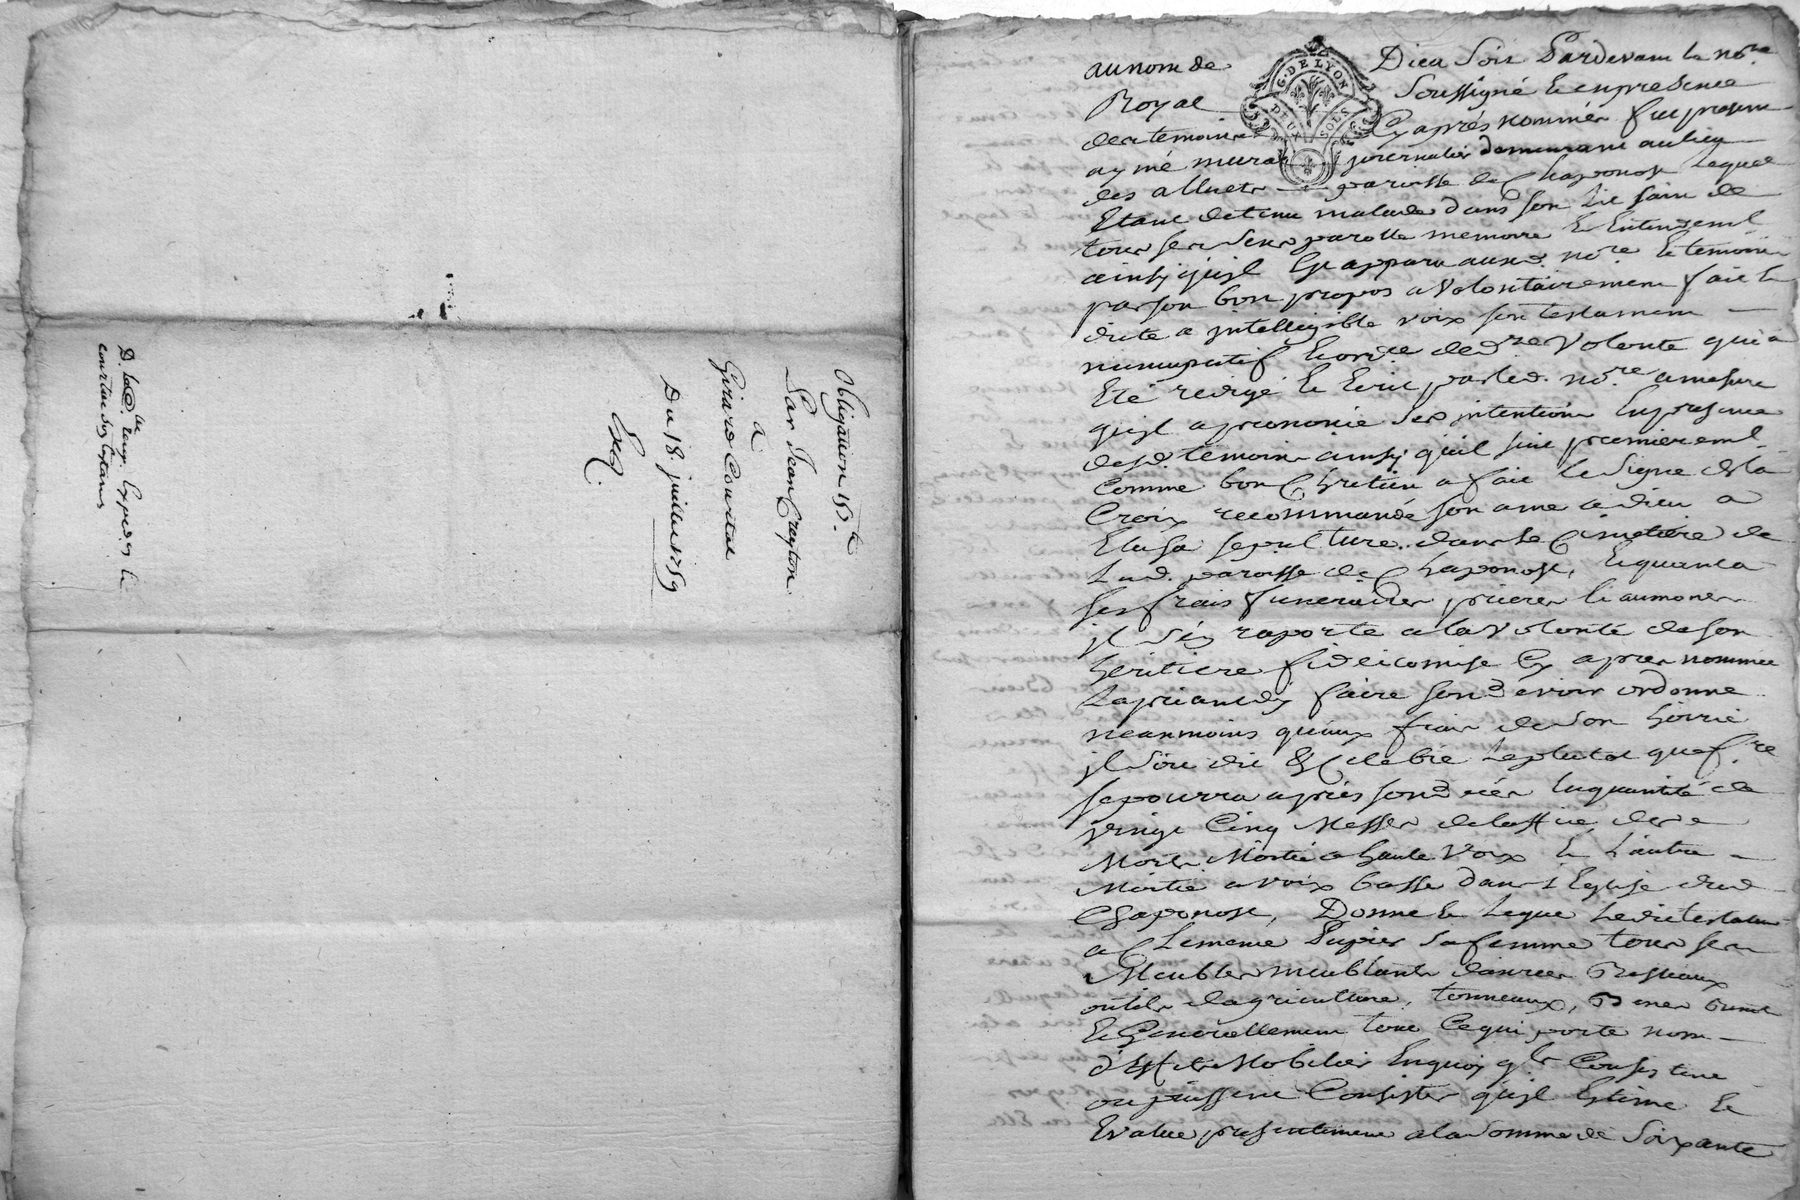 Obligation 150.ᵗᵗ
Par Jean Creyton
a
Girard Courtal
Du 18. juillet 1759
Exp.
G. DE LYON
DEUX SOLS
au nom de Dieu Soit Pardevant le no.ʳᵉ
Royal Soussigné & en presence
des temoins Cy aprés nommés fut present
aymé murat journalier demeurant au lieu
des alluets paroisse de Chaponost Lequel
Etant detenu malade dans son lit sain de
tous ses sens parolle memoire & Entendem.ᵗ
ainsy qu'jl Est apparu aud. no.ʳᵉ & temoins
par son bon propos a Volontairement fait &
dicté a jntelligible voix son testament
nuncupatif & ord.ʳᵉ de d.ʳᵉ Volonté qui a
Eté redigé & Ecrit par led. no.ʳᵉ a mesure
qu'jl a prononcé ses jntentions En presence
desd. temoins ainsy qu'il suit premierem.ᵗ
Comme bon Chretien a fait le Signe de la
Croix recommandé son ame a dieu a
Elu sa sepulture dans le Cimetiére de
lad. paroisse de Chaponost, & quant a
ses frais funeraires prieres & aumones
jl s'en raporte a la Volonté de son
heritiere fideicomise Cy aprés nommée
La priant d'y faire son dévoir ordonne
neanmoins qu'aux frais de son hoirie
jl soit dit & Celebré le plutot que f.ʳᵉ
se pourra aprés son decés la quantité de
vingt Cinq Messes de l'office des
Morts Moitié a haute Voix & l'autre
Moitié a voix basse dans l'Eglise dud.
Chaponost, Donne & Legue Ledit testateur
a Clemence Pupier sa femme tous ses
Meubles meublants danrées Bestiaux
outils d'agriculture, tonneaux,
& Generallement tout Ce qui porte nom
d'Effets Mobiliers En quoy q'ls Consistent
ou puissent Consister qu'jl Estime &
Evalue presentement a la Somme de Soixante